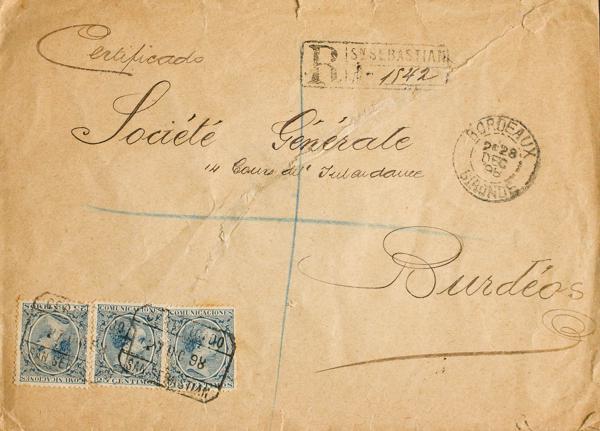 Certificado
R
Sn SEBASTIAN
1542
Société Générale
14 Cours de l'Intendance
BORDEAUX
2E 28
DEC
98
GIRONDE
Burdéos
COMUNICACIONES
COMUNICACIONES
COMUNICACIONES
CERTIFICADO
27 DIC 98
SAN SEBASTIAN